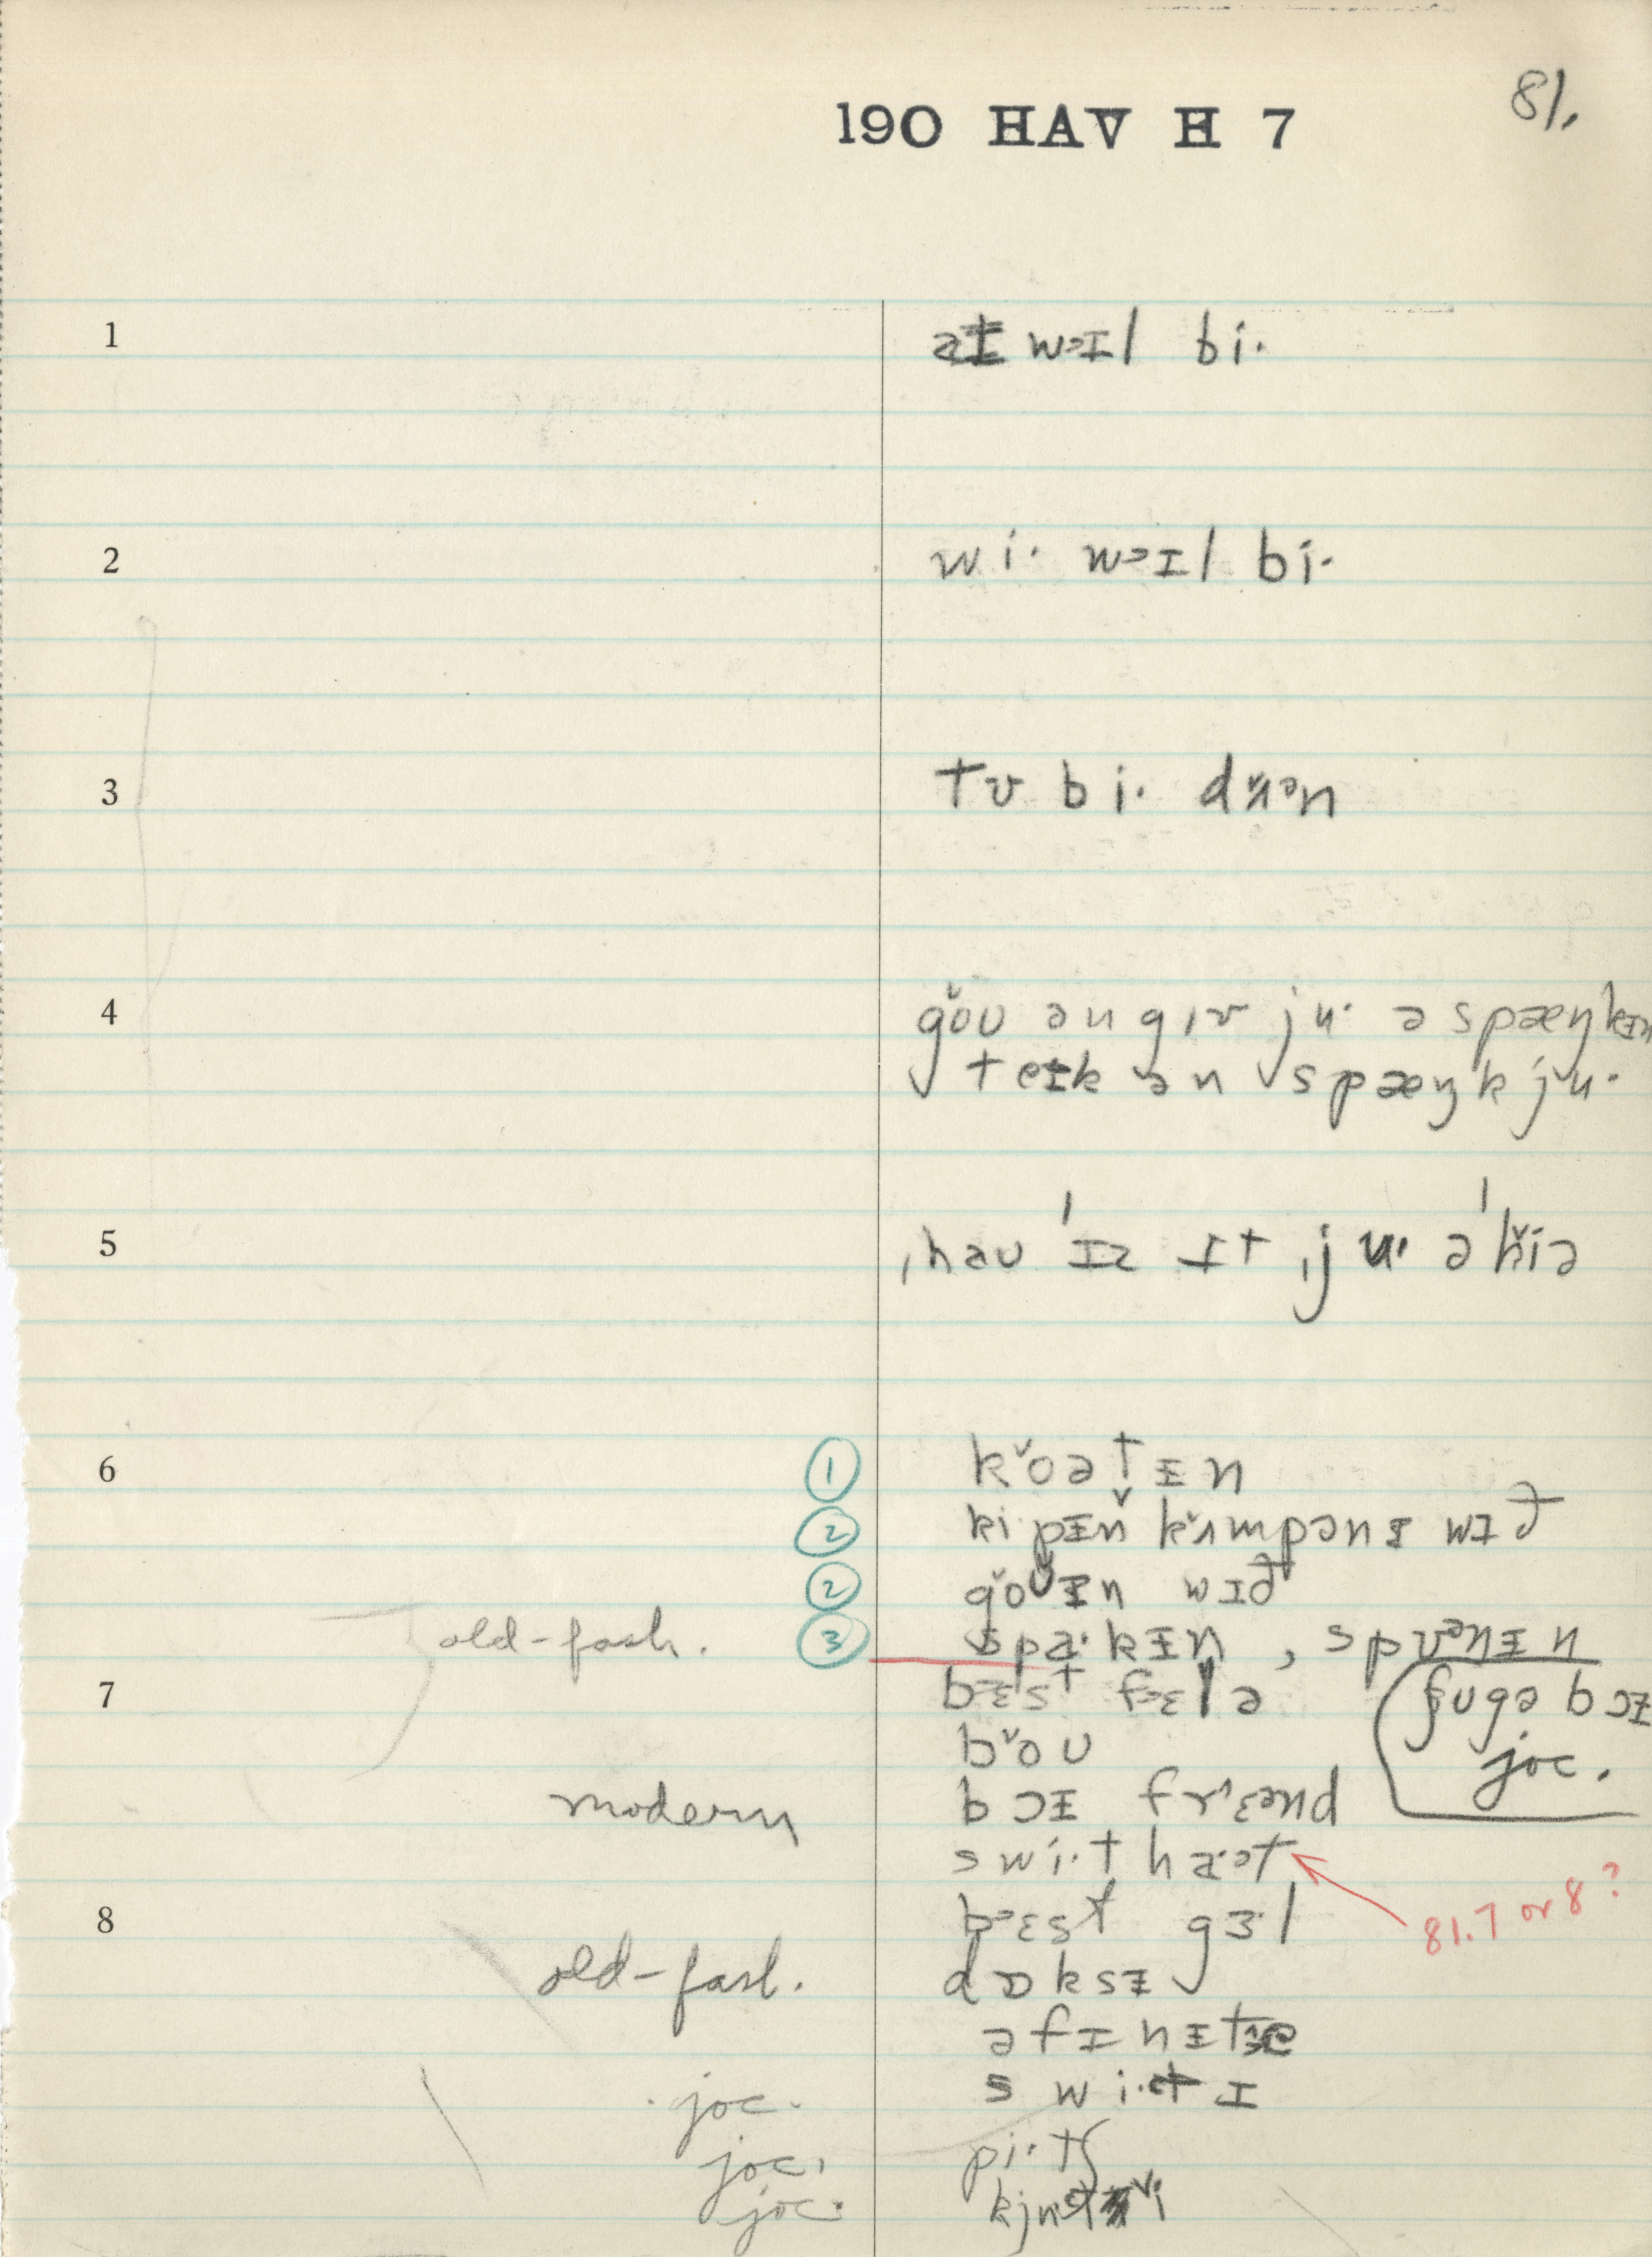 190 HAV H 7
81.
1 aɪ wəɪl bi·
2 wi· wəɪl bi·
3 tʊ bi· dʌ̌ən
4 gǒʊ ən gɪv ju· ə spæŋkɪn
teɪk ən spæŋk ju·
5 ˌhaʊ ˈɪz ɪt ˌju· əˈȟiə
6 ① kǒətᵻn
② ki·pᵻn kʌ̌mpənᵻ wɪð
② gǒʊᵻn wɪð
old-fash. ③ spa·kᵻn , sp
7 bɛst fɛlə
ʃʊgə bɔᵻ
joc.
bǒʊ
modern bɔᵻ frɛənd
swi·t ha·ət
81.7 or 8 ?
8 bɛst gɜ·l
old-fash. dɒksᵻ
əfɪnᵻt
joc. swi·tɪ
joc. pi·tʃ
joc. kju